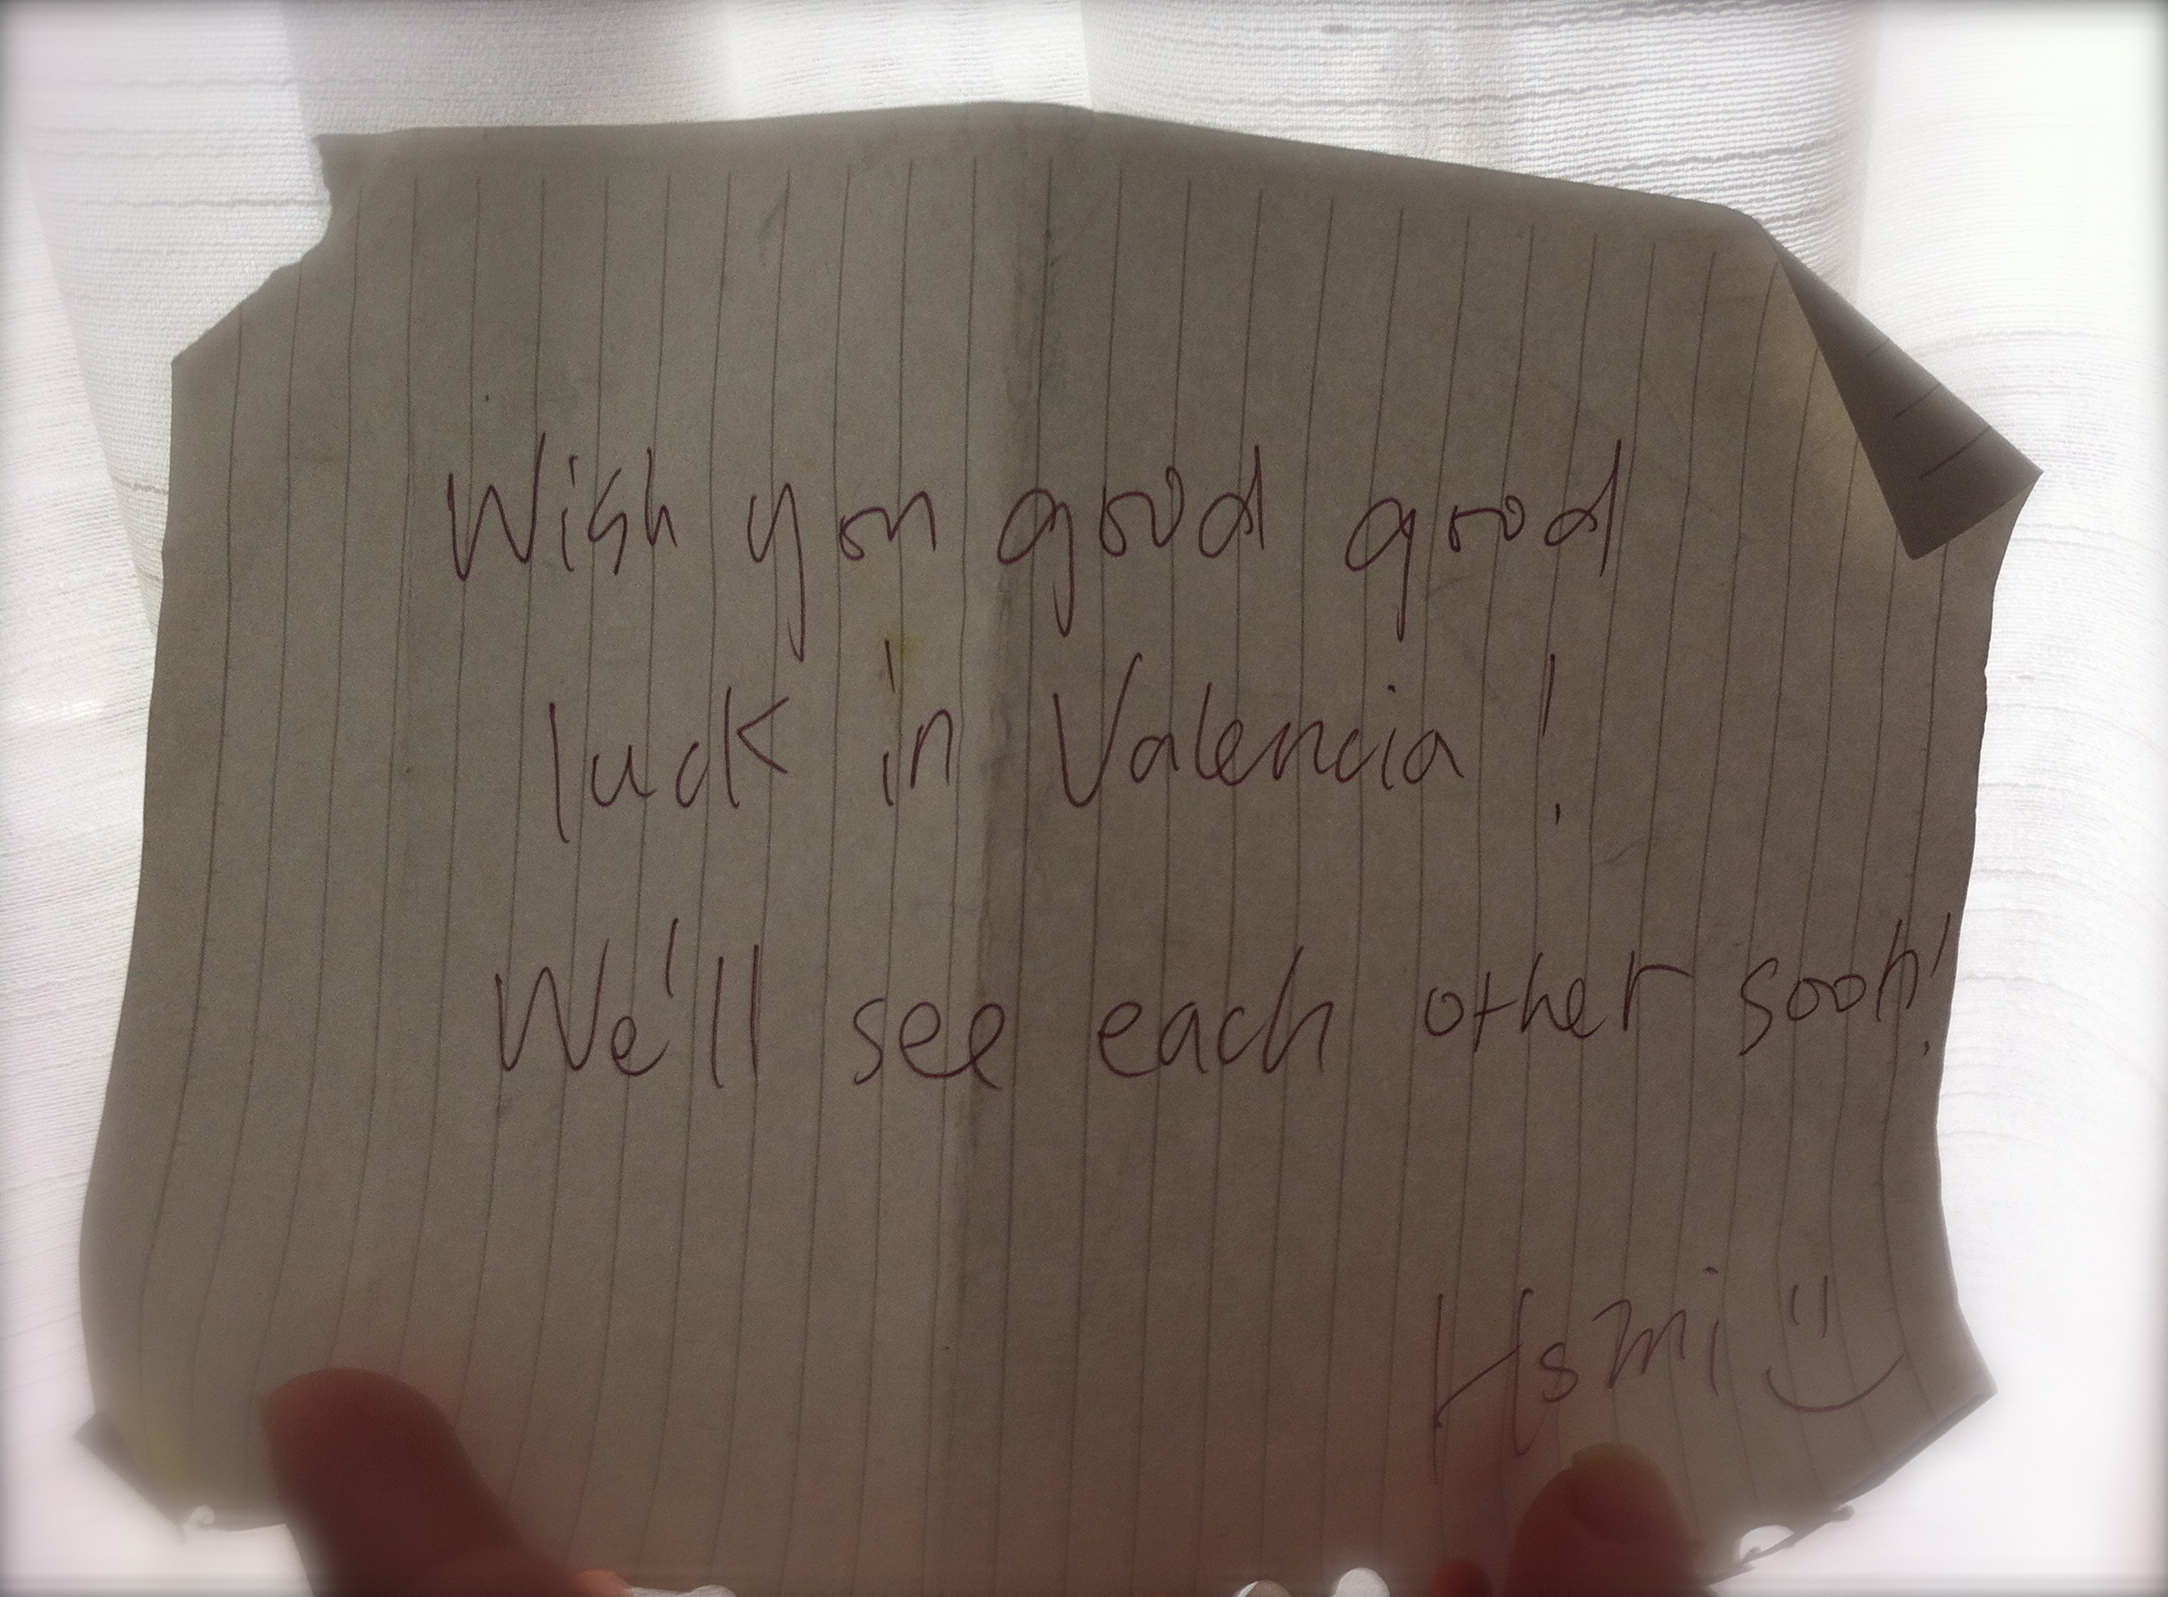 Wish you good good
luck in Valencia!
We'll see each other soon!